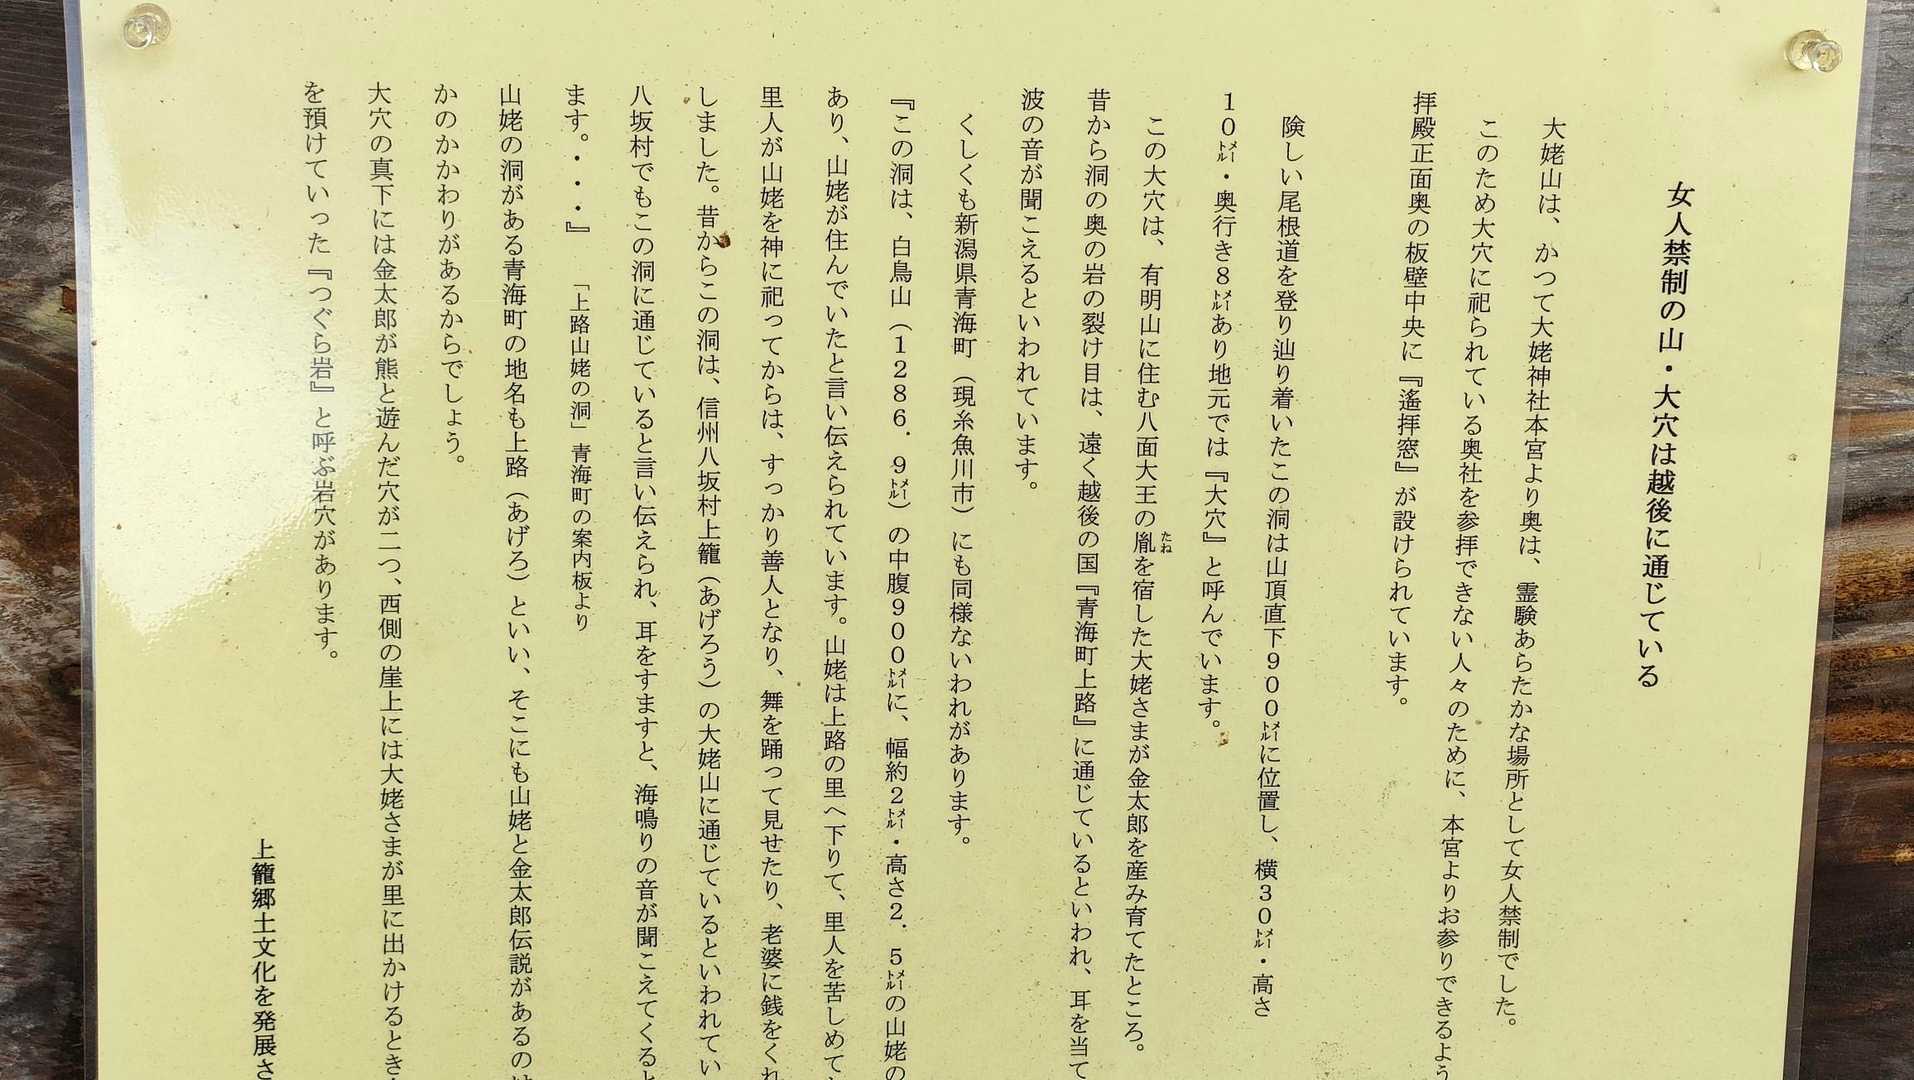 女人禁制の山・大穴は越後に通じている
大姥山は、かつて大姥神社本宮より奥は、霊験あらたかな場所として女人禁制でした。
このため大穴に祀られている奥社を参拝できない人々のために、本宮よりお参りできるよう
拝殿正面奥の板壁中央に『遙拝窓』が設けられています。
険しい尾根道を登り辿り着いたこの洞は山頂直下９００㍍に位置し、横３０㍍・高さ
１０㍍・奥行き８㍍あり地元では『大穴』と呼んでいます。
この大穴は、有明山に住む八面大王の胤たねを宿した大姥さまが金太郎を産み育てたところ。
昔から洞の奥の岩の裂け目は、遠く越後の国『青海町上路』に通じているといわれ、耳を当て
波の音が聞こえるといわれています。
くしくも新潟県青海町（現糸魚川市）にも同様ないわれがあります。
『この洞は、白鳥山（１２８６．９㍍）の中腹９００㍍に、幅約２㍍・高さ２．５㍍の山姥の
あり、山姥が住んでいたと言い伝えられています。山姥は上路の里へ下りて、里人を苦しめて
里人が山姥を神に祀ってからは、すっかり善人となり、舞を踊って見せたり、老婆に銭をくれ
しました。昔からこの洞は、信州八坂村上籠（あげろう）の大姥山に通じているといわれてい
八坂村でもこの洞に通じていると言い伝えられ、耳をすますと、海鳴りの音が聞こえてくると
ます。・・・』　「上路山姥の洞」青海町の案内板より
山姥の洞がある青海町の地名も上路（あげろ）といい、そこにも山姥と金太郎伝説があるのは
かのかかわりがあるからでしょう。
大穴の真下には金太郎が熊と遊んだ穴が二つ、西側の崖上には大姥さまが里に出かけるとき
を預けていった『つぐら岩』と呼ぶ岩穴があります。
上籠郷土文化を発展さ